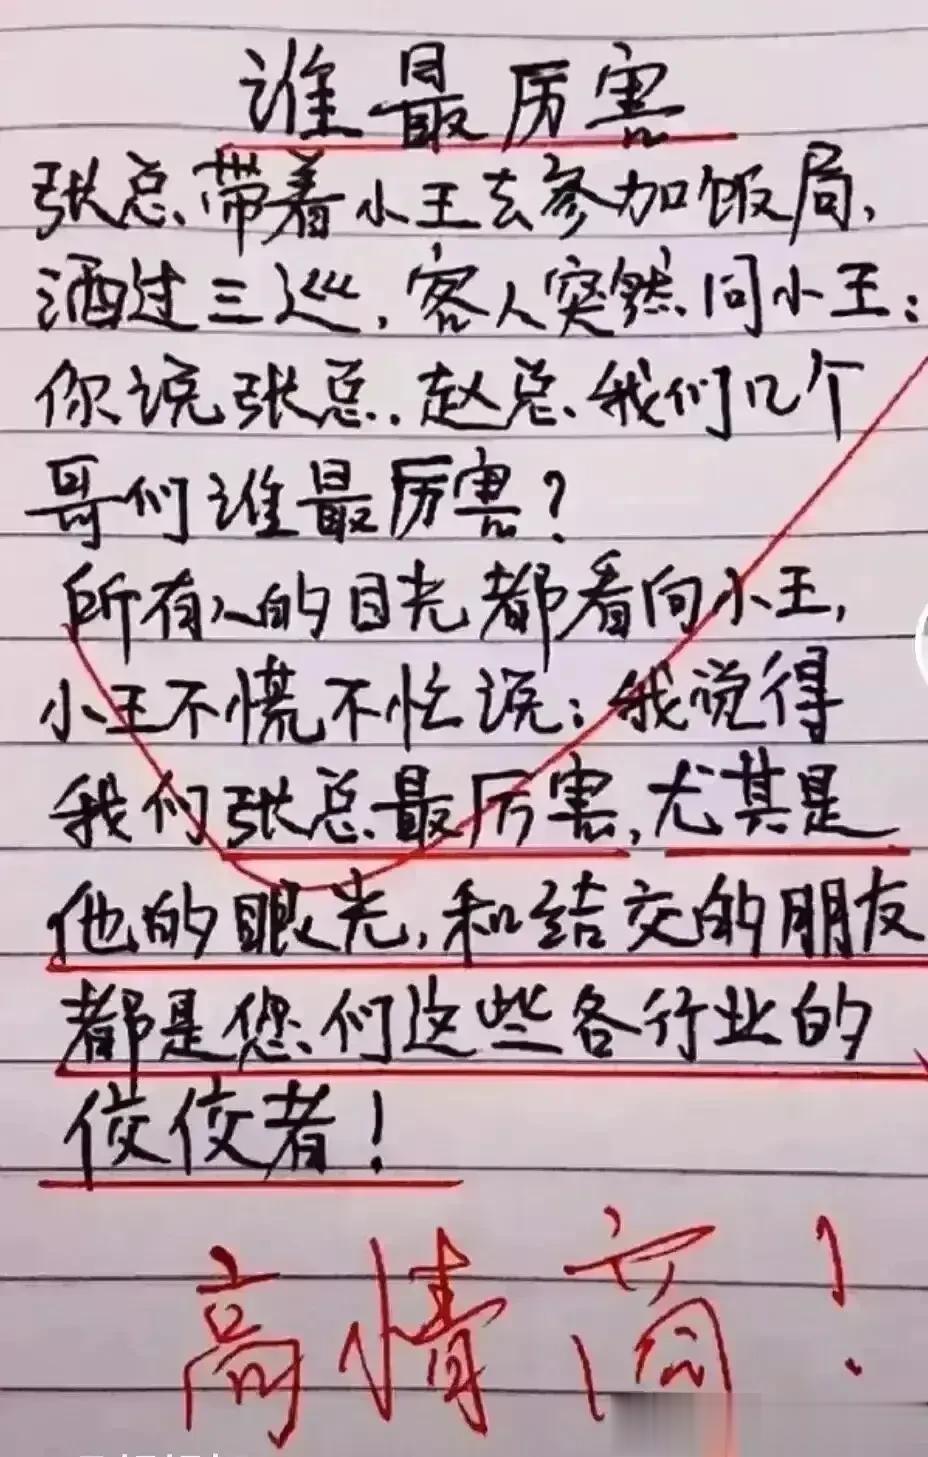 谁最厉害
张总带着小王去参加饭局,
酒过三巡,客人突然问小王:
你说张总.赵总.我们几个
哥们谁最厉害?
所有人的目光都看向小王,
小王不慌不忙说:我觉得
我们张总最厉害,尤其是
他的眼光,和结交的朋友
都是您们这些各行业的
佼佼者!
高情商!